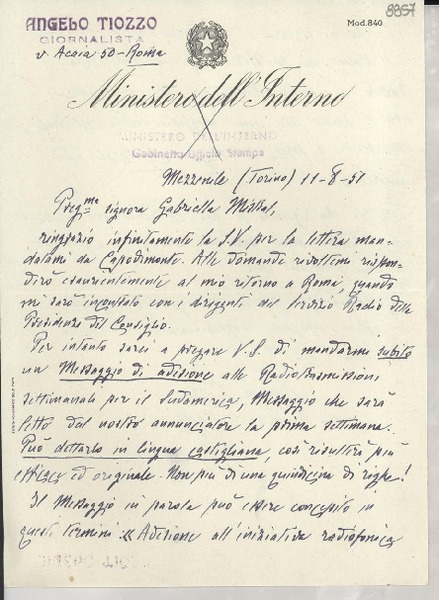 8857
ANGELO TIOZZO
GIORNALISTA
v. Acaia 50 - Roma
Mod. 840
Ministero dell'Interno
MINISTERO DELL'INTERNO
Gabinetto Ufficio Stampa
Mezzenile (Torino) 11-8-51
Preg.ma signora Gabriella Mistral,
ringrazio infinitamente la S.V. per la lettera man-
datami da Capodimonte. Alle domande rivoltemi rispon-
derò esaurientemente al mio ritorno a Roma, quando
mi sarò incontrato con i dirigenti del servizio Radio della
Presidenza del Consiglio.
Per intanto sarei a pregare V.S. di mandarmi subito
un Messaggio di adesione alle Radiotrasmissioni
settimanali per il Sudamerica, Messaggio che sarà
letto dal nostro annunciatore la prima settimana.
Può dettarlo in lingua castigliana, così risulterà più
efficace ed originale. Non più di una quindicina di righe!
Il Messaggio in parola può essere concepito in
questi termini: "Adesione all'iniziativa radiofonica